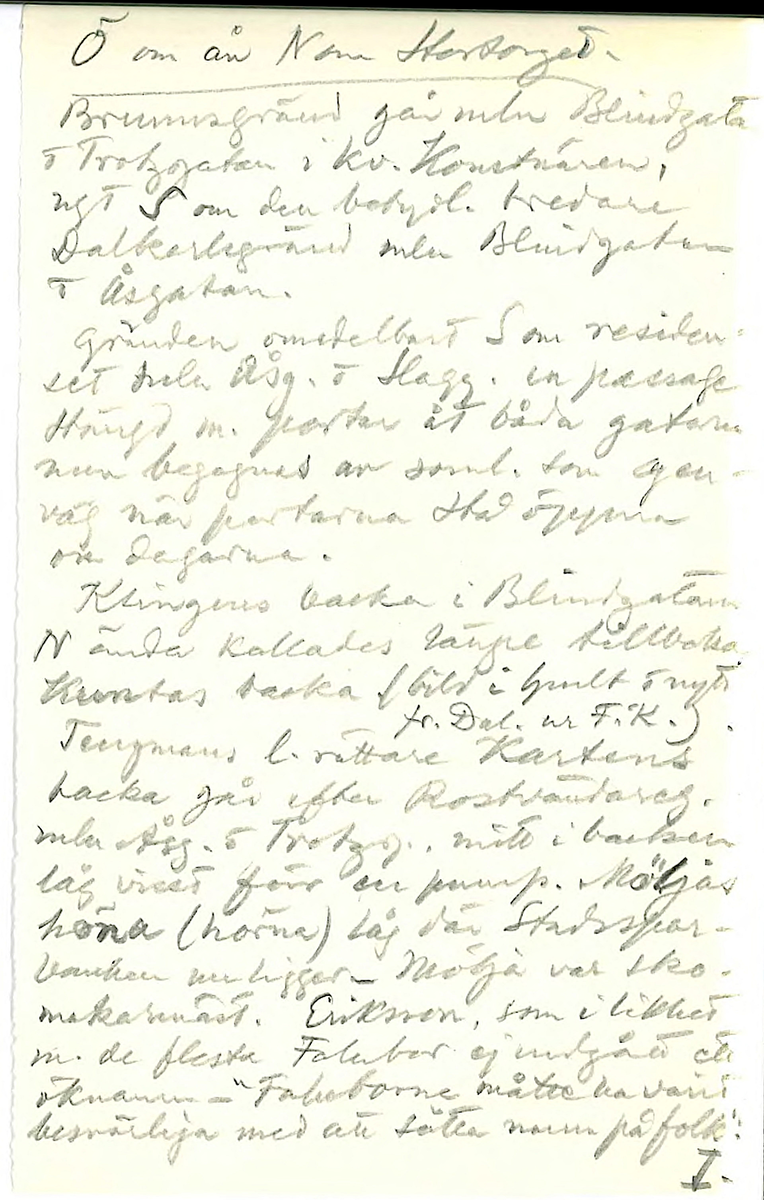 Ö om ån N om Stortorget.
Brunnsgränd går mln Blindgatan
o Trotzgatan i kv. Konstnären,
ngt S om den betydl. bredare
Dalkarlsgränd mln Blindgatan
o Åsgatan.
Gränden omedelbart S om residen-
set mln Åsg. o Slagg. en passage
stängd m. portar åt båda gatorna
men begagnas av soml. som gen-
väg när portarna stå öppna
om dagarna.
Klingens backe i Blindgatans
N ända kallades länge tillbaka
backa (bild i Hult o nytt
fr. Dal. ur F.K.).
Tengmans l. rättare Kartens
backa går efter Rostvändareg.
mln Åsg. o Trotzg., mitt i backen
låg visst förr en pump. Möljas
höna (hörna) låg där Stadsspar-
banken nu ligger – Mölja var sko-
makaremäst. Eriksson, som i likhet
m. de flesta Falubor ej undgått ett
öknamn – "Faluborne måtte ha varit
besvärliga med att sätta namn på folk".
I.